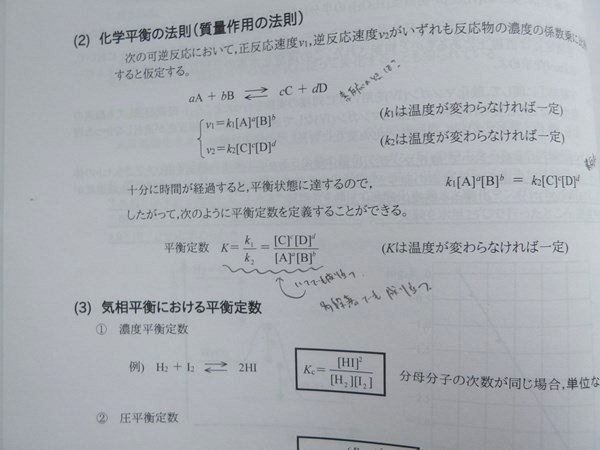 (2) 化学平衡の法則(質量作用の法則)
次の可逆反応において,正反応速度v₁,逆反応速度v₂がいずれも反応物の濃度の係数乗に
すると仮定する。
aA + bB ⇄ cC + dD
v₁=k₁[A]ᵃ[B]ᵇ (k₁は温度が変わらなければ一定)
v₂=k₂[C]ᶜ[D]ᵈ (k₂は温度が変わらなければ一定)
十分に時間が経過すると,平衡状態に達するので, k₁[A]ᵃ[B]ᵇ = k₂[C]ᶜ[D]ᵈ
したがって,次のように平衡定数を定義することができる。
平衡定数 K = k₁/k₂ = [C]ᶜ[D]ᵈ/[A]ᵃ[B]ᵇ (Kは温度が変わらなければ一定)
いつでも成り立つ。
多段階でも成り立つ
(3) 気相平衡における平衡定数
① 濃度平衡定数
例) H₂ + I₂ ⇄ 2HI Kc = [HI]²/[H₂][I₂] 分母分子の次数が同じ場合,単位な
② 圧平衡定数